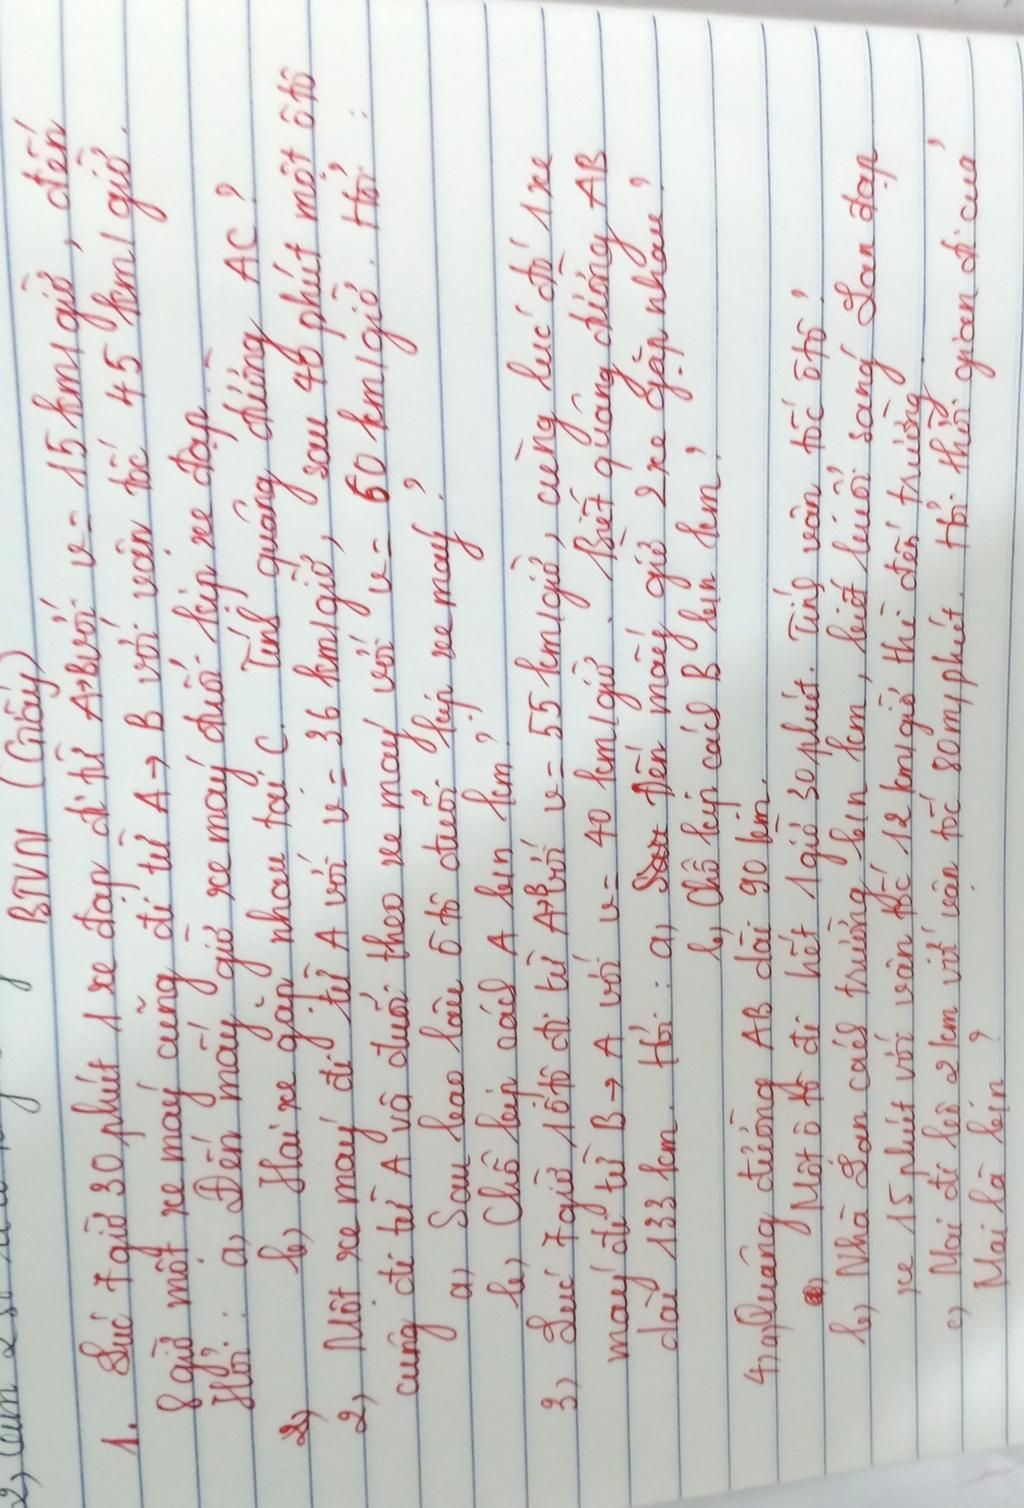 BTVN (Giấy)
1. Lúc 7 giờ 30 phút 1 xe đạp đi từ A→B với v = 15 km/giờ, đến
8 giờ một xe máy cũng đi từ A → B với vận tốc 45 km/giờ.
Hỏi: a, Đến mấy giờ xe máy đuổi kịp xe đạp.
b, Hai xe gặp nhau tại C. Tính quãng đường AC?
2, Một xe máy đi từ A với v = 36 km/giờ, sau 40 phút một ôtô
cũng đi từ A và đuổi theo xe máy với v = 60 km/giờ. Hỏi:
a, Sau bao lâu ôtô đuổi kịp xe máy?
b, Chỗ kịp cách A bn km?
3, Lúc 7 giờ 1 ôtô đi từ A→B với v = 55 km/giờ, cùng lúc đó 1 xe
máy đi từ B → A với v = 40 km/giờ. Biết quãng đường AB
dài 133 km. Hỏi: a, Đến mấy giờ 2 xe gặp nhau?
b, Chỗ kịp cách B bn km?
4, a, Quãng đường AB dài 90 km.
Một ôtô đi hết 1 giờ 30 phút. Tính vận tốc ôtô?
b, Nhà Lan cách trường bn km, biết buổi sáng Lan đạp
xe 15 phút với vận tốc 12 km/giờ thì đến trường.
c, Mai đi bộ 2 km với vận tốc 80m/phút. Hỏi thời gian đi của
Mai là bn?